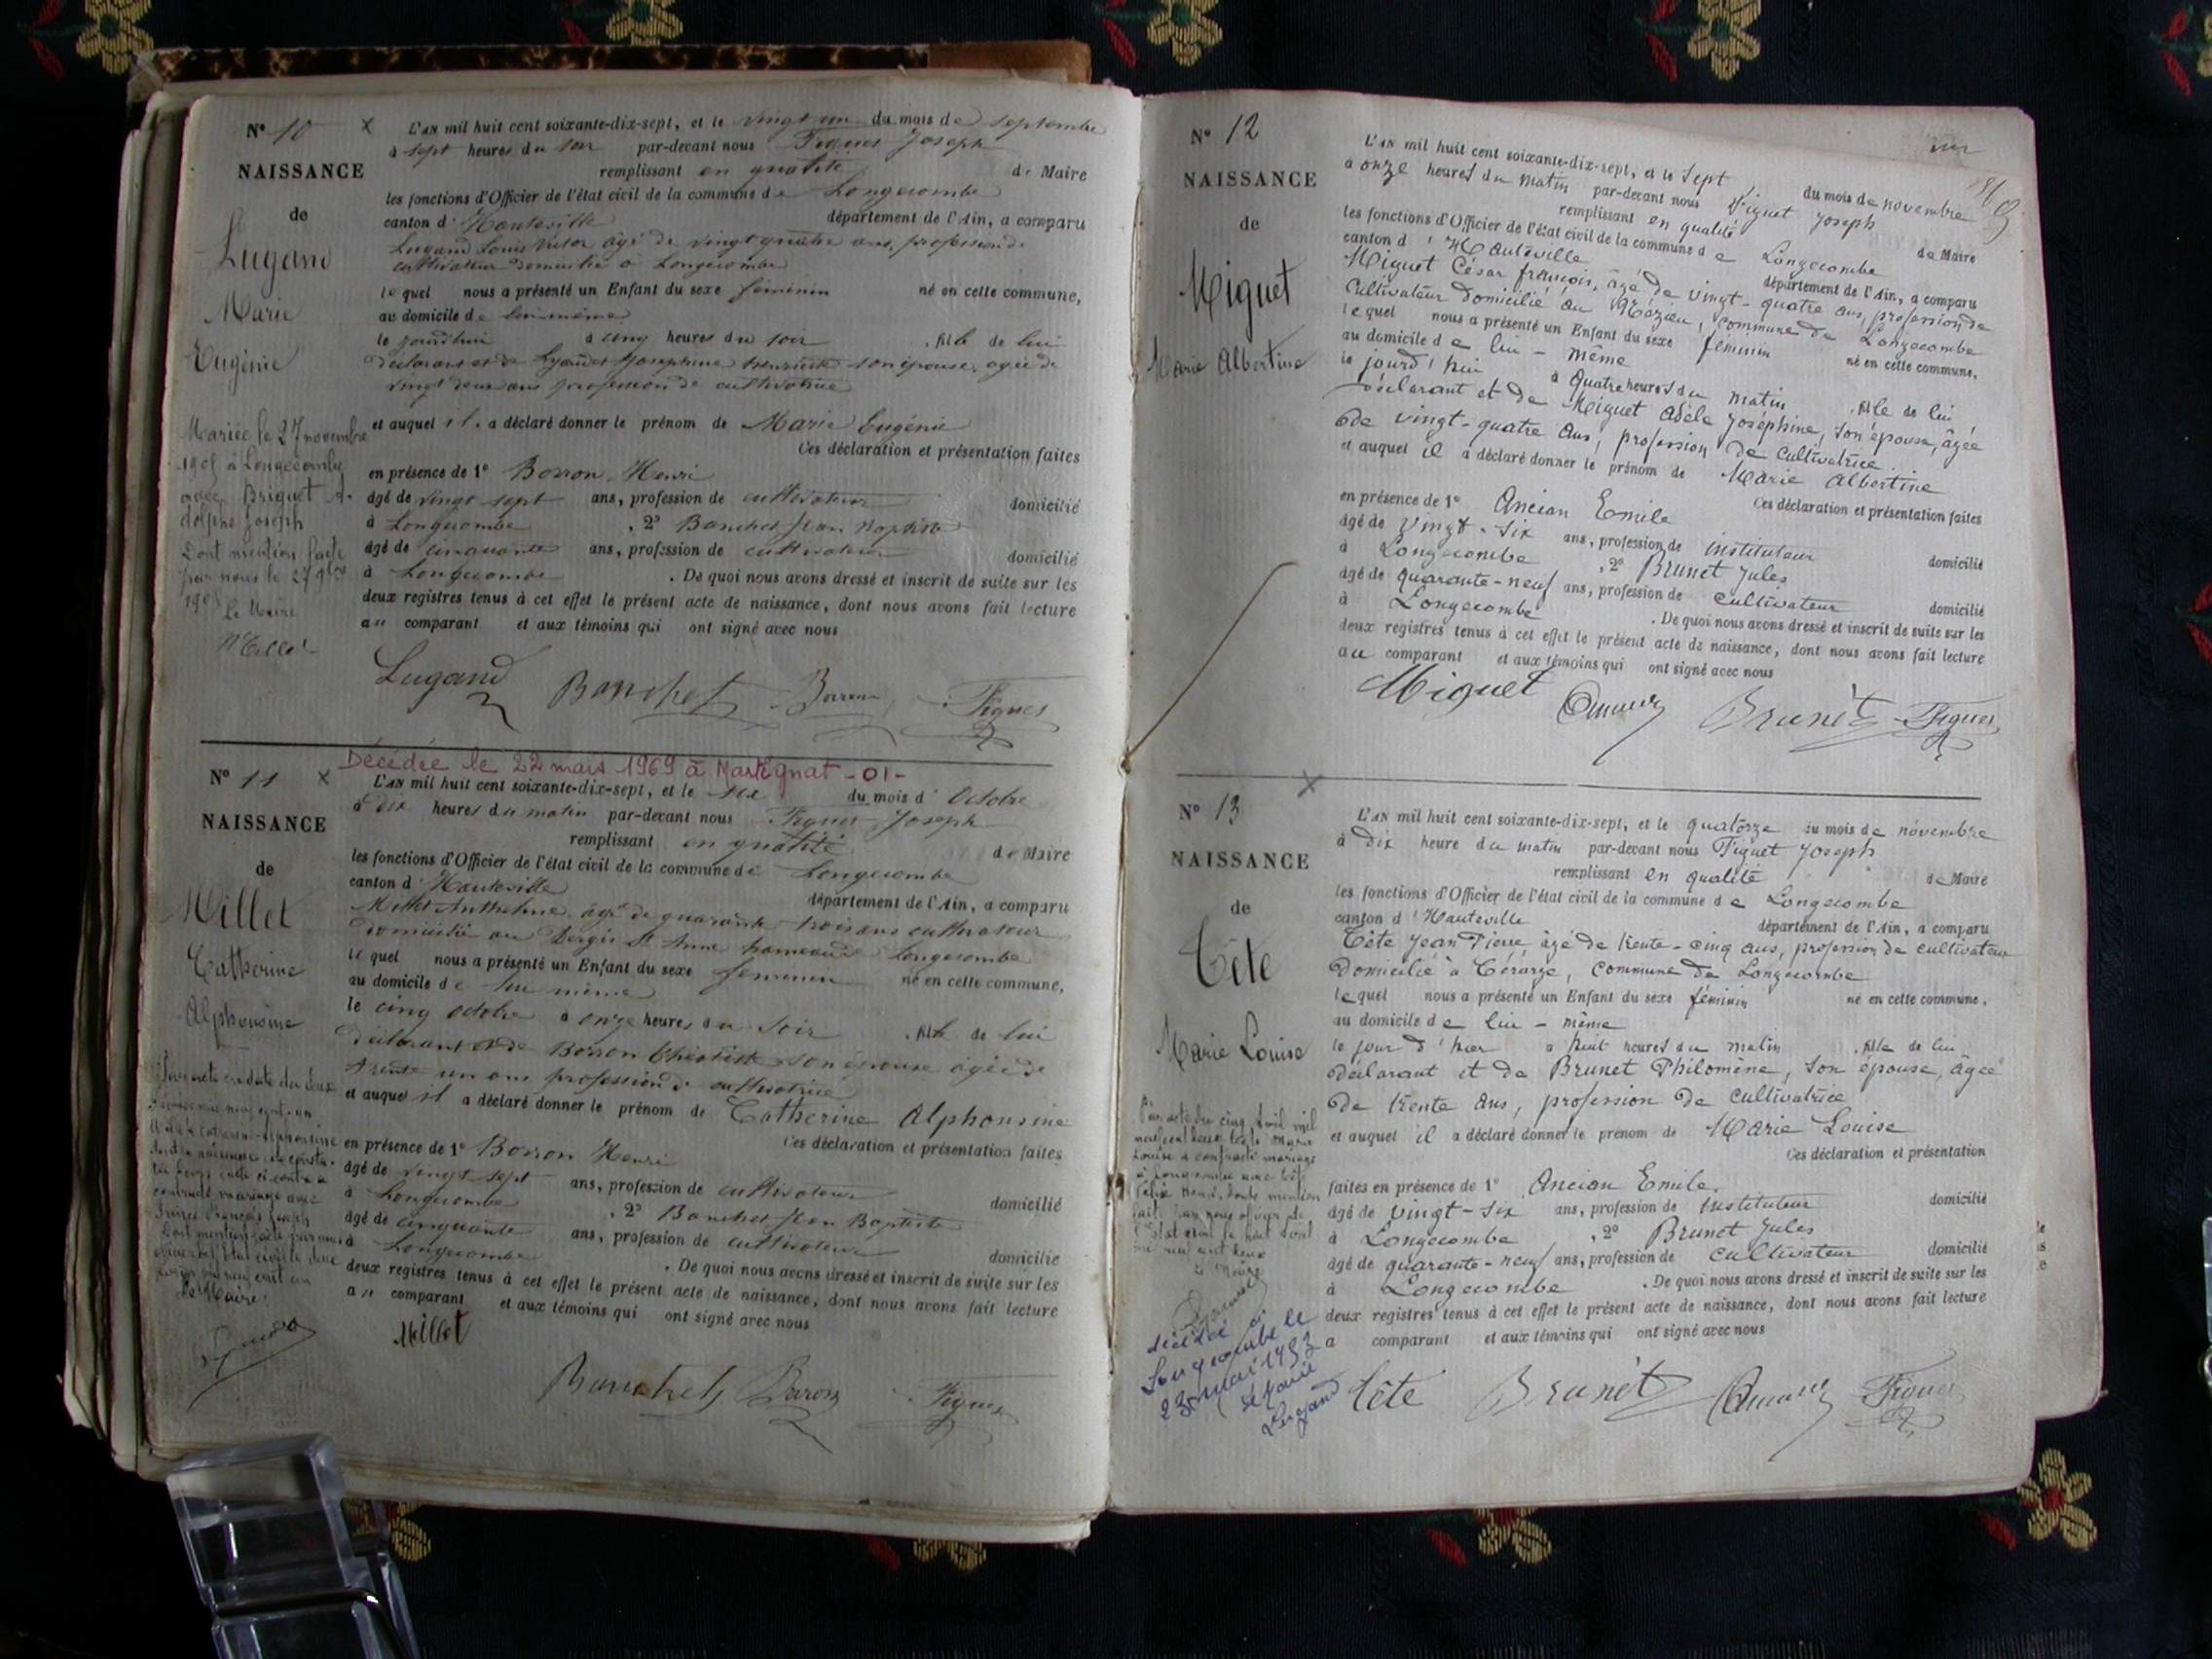 N° 10
NAISSANCE
de
Lugand
Marie
Eugénie
Mariée le 27 novembre
à Longecombe
avec Briquet A-
dolphe Joseph
Dont mention faite
par nous le 27 9bre
Le Maire
L'AN mil huit cent soixante-dix-sept, et le vingt un du mois de septembre
à sept heures du soir par-devant nous Figuet Joseph
remplissant en qualité de Maire
les fonctions d'Officier de l'état civil de la commune de Longecombe
canton d'Hauteville département de l'Ain, a comparu
Lugand Louis Victor âgé de vingt quatre ans, profession de
cultivateur domicilié à Longecombe
lequel nous a présenté un Enfant du sexe féminin né en cette commune,
au domicile de lui même
le jourd'hui à cinq heures du soir , fille de lui
déclarant et de Josephine son épouse, agée de
vingt deux ans profession de cultivatrice
et auquel il a déclaré donner le prénom de Marie Eugénie
Ces déclaration et présentation faites
en présence de 1° Borron Henri
âgé de vingt sept ans, profession de cultivateur domicilié
à Longecombe , 2° Banchet Jean Baptiste
âgé de cinquante ans, profession de cultivateur domicilié
à Longecombe . De quoi nous avons dressé et inscrit de suite sur les
deux registres tenus à cet effet le présent acte de naissance, dont nous avons fait lecture
au comparant et aux témoins qui ont signé avec nous
Lugand Banchet Borron Figuet
Décédée le 22 mars 1969 à Martignat -01-
N° 11
NAISSANCE
de
Millet
Catherine
Alphonsine
Par acte en date du deux
mil neuf cent un
Millet Catherine Alphonsine
dont la naissance est consta-
tée par l'acte ci-contre a
contracté mariage avec
François Joseph
Dont mention faite par nous
officier de l'état civil le deux
mil neuf cent un
Le Maire
L'AN mil huit cent soixante-dix-sept, et le six du mois d'Octobre
à dix heures du matin par-devant nous Figuet Joseph
remplissant en qualité de Maire
les fonctions d'Officier de l'état civil de la commune de Longecombe
canton d'Hauteville département de l'Ain, a comparu
Millet Anthelme âgé de quarante trois ans cultivateur
domicilié au St Anne hameau de Longecombe
lequel nous a présenté un Enfant du sexe féminin né en cette commune,
au domicile de lui même
le cinq octobre à onze heures du soir , fille de lui
déclarant et de Borron son épouse agée de
trente un ans profession de cultivatrice
et auquel il a déclaré donner le prénom de Catherine Alphonsine
Ces déclaration et présentation faites
en présence de 1° Borron Henri
âgé de vingt sept ans, profession de cultivateur domicilié
à Longecombe , 2° Banchet Jean Baptiste
âgé de cinquante ans, profession de cultivateur domicilié
à Longecombe . De quoi nous avons dressé et inscrit de suite sur les
deux registres tenus à cet effet le présent acte de naissance, dont nous avons fait lecture
au comparant et aux témoins qui ont signé avec nous
Millet
Banchet Borron Figuet
N° 12
NAISSANCE
de
Miguet
Marie Albertine
L'AN mil huit cent soixante-dix-sept, et le sept du mois de novembre
à onze heures du matin par-devant nous Figuet Joseph
remplissant en qualité de Maire
les fonctions d'Officier de l'état civil de la commune de Longecombe
canton d'Hauteville département de l'Ain, a comparu
Miguet César françois, âgé de vingt-quatre ans, profession de
Cultivateur domicilié au Mézieu, commune de Longecombe
lequel nous a présenté un Enfant du sexe féminin né en cette commune,
au domicile de lui-même
le jourd'hui à quatre heures du matin , fille de lui
déclarant et de Miguet Adèle Joséphine, son épouse, âgée
de vingt-quatre ans, profession de Cultivatrice
et auquel il a déclaré donner le prénom de Marie Albertine
Ces déclaration et présentation faites
en présence de 1° Ancian Emile
âgé de vingt-six ans, profession de instituteur domicilié
à Longecombe , 2° Brunet Jules
âgé de quarante-neuf ans, profession de cultivateur domicilié
à Longecombe . De quoi nous avons dressé et inscrit de suite sur les
deux registres tenus à cet effet le présent acte de naissance, dont nous avons fait lecture
au comparant et aux témoins qui ont signé avec nous
Miguet Ancian Brunet Figuet
N° 13
NAISSANCE
de
Tête
Marie Louise
Par acte du cinq Avril mil
neuf cent deux Tête Marie
Louise a contracté mariage
à Longecombe avec Tête
Félix Henri, dont mention
faite par nous officier de
l'Etat civil le huit Avril
mil neuf cent deux
Le Maire
décédée à
Longecombe le
23 mai 1953
Le Maire
Lugand
L'AN mil huit cent soixante-dix-sept, et le quatorze du mois de novembre
à dix heure du matin par-devant nous Figuet Joseph
remplissant en qualité de Maire
les fonctions d'Officier de l'état civil de la commune de Longecombe
canton d'Hauteville département de l'Ain, a comparu
Tête Jean Pierre âgé de trente-cinq ans, profession de cultivateur
domicilié à Cérarge, commune de Longecombe
lequel nous a présenté un Enfant du sexe féminin né en cette commune,
au domicile de lui-même
le jour d'hier à huit heures du matin , fille de lui
déclarant et de Brunet Philomène, son épouse, âgée
de trente ans, profession de cultivatrice
et auquel il a déclaré donner le prénom de Marie Louise
Ces déclaration et présentation
faites en présence de 1° Ancian Emile
âgé de vingt-six ans, profession de instituteur domicilié
à Longecombe , 2° Brunet Jules
âgé de quarante-neuf ans, profession de cultivateur domicilié
à Longecombe . De quoi nous avons dressé et inscrit de suite sur les
deux registres tenus à cet effet le présent acte de naissance, dont nous avons fait lecture
a comparant et aux témoins qui ont signé avec nous
Tête Brunet Ancian Figuet